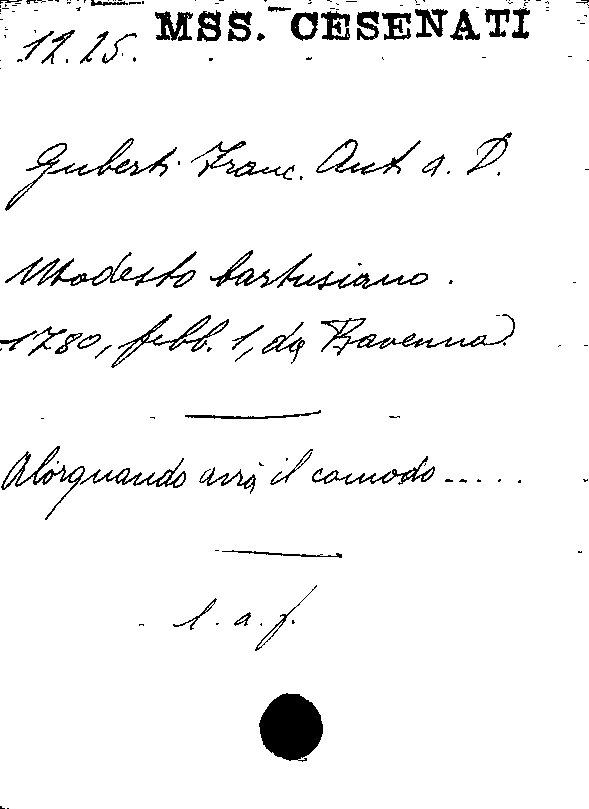 MSS. CESENATI
12.25.
Guberti Franc. Ant. a. D.
Modesto Cartusiano.
1780, febb. 1, da Ravenna.
Alorquando avrà il comodo.....
l. a. f.